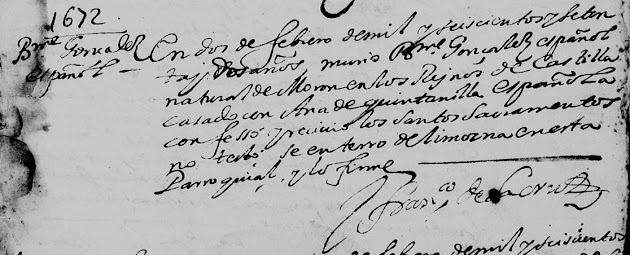 1672.
Brme Gonzalez
español
En dos de febrero demil y seiscientos y seten
tay dos años, murio Brme Gonçalez español
natural de Moron en los Reynos de Castilla
casado con Ana de quintanilla Española
confesso, y recivio los Santos Sacramentos
no testo, se enterro de limozna en esta
Parroquial, y lo firme
Franco de la Cruz
febrero demil y seiscientos